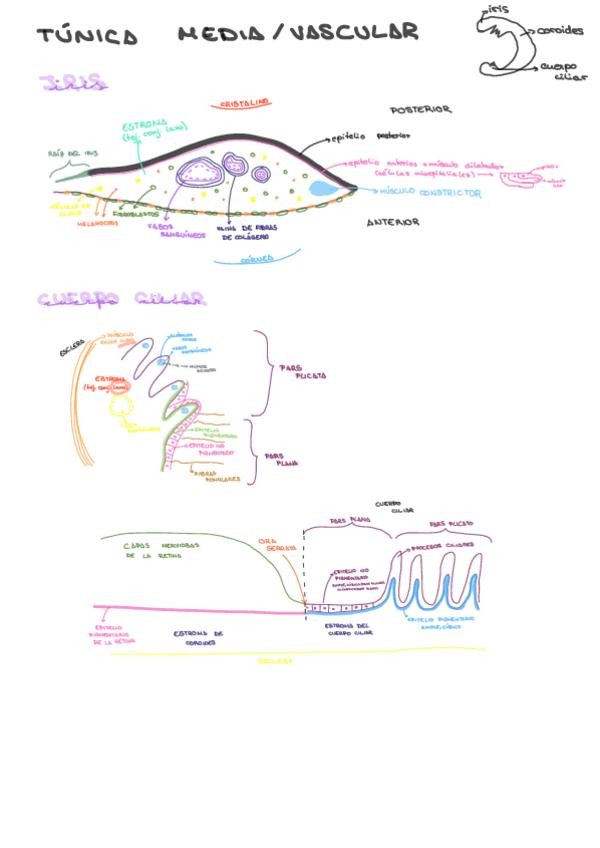 TÚNICA MEDIA/VASCULAR
iris
coroides
cuerpo
ciliar
IRIS
CRISTALINO
POSTERIOR
ESTROMA
(tej. conj. laxo)
epitelio posterior
RAÍZ DEL IRIS
epitelio anterior + músculo dilatador
(células mioepiteliales)
MÚSCULO CONSTRICTOR
MELANOCITOS
FIBROBLASTOS
VASOS
SANGUÍNEOS
VAINA DE FIBRAS
DE COLÁGENO
ANTERIOR
CÓRNEA
CUERPO CILIAR
ESCLERA
MÚSCULO
CILIAR LISO
HUMOR
ACUOSO
ESTROMA
(tej. conj. laxo)
PARS
PLICATA
EPITELIO
PIGMENTADO
EPITELIO NO
PIGMENTADO
PARS
PLANA
FIBRAS
ZONULARES
CUERPO
CILIAR
PARS PLANA
PARS PLICATA
CAPAS NERVIOSAS
DE LA RETINA
ORA
SERRATA
PROCESOS CILIARES
EPITELIO NO
PIGMENTADO
EPITELIO
PIGMENTARIO
DE LA RETINA
ESTROMA DE
COROIDES
ESTROMA DEL
CUERPO CILIAR
EPITELIO PIGMENTADO
SIMPLE CÚBICO
ESCLERA